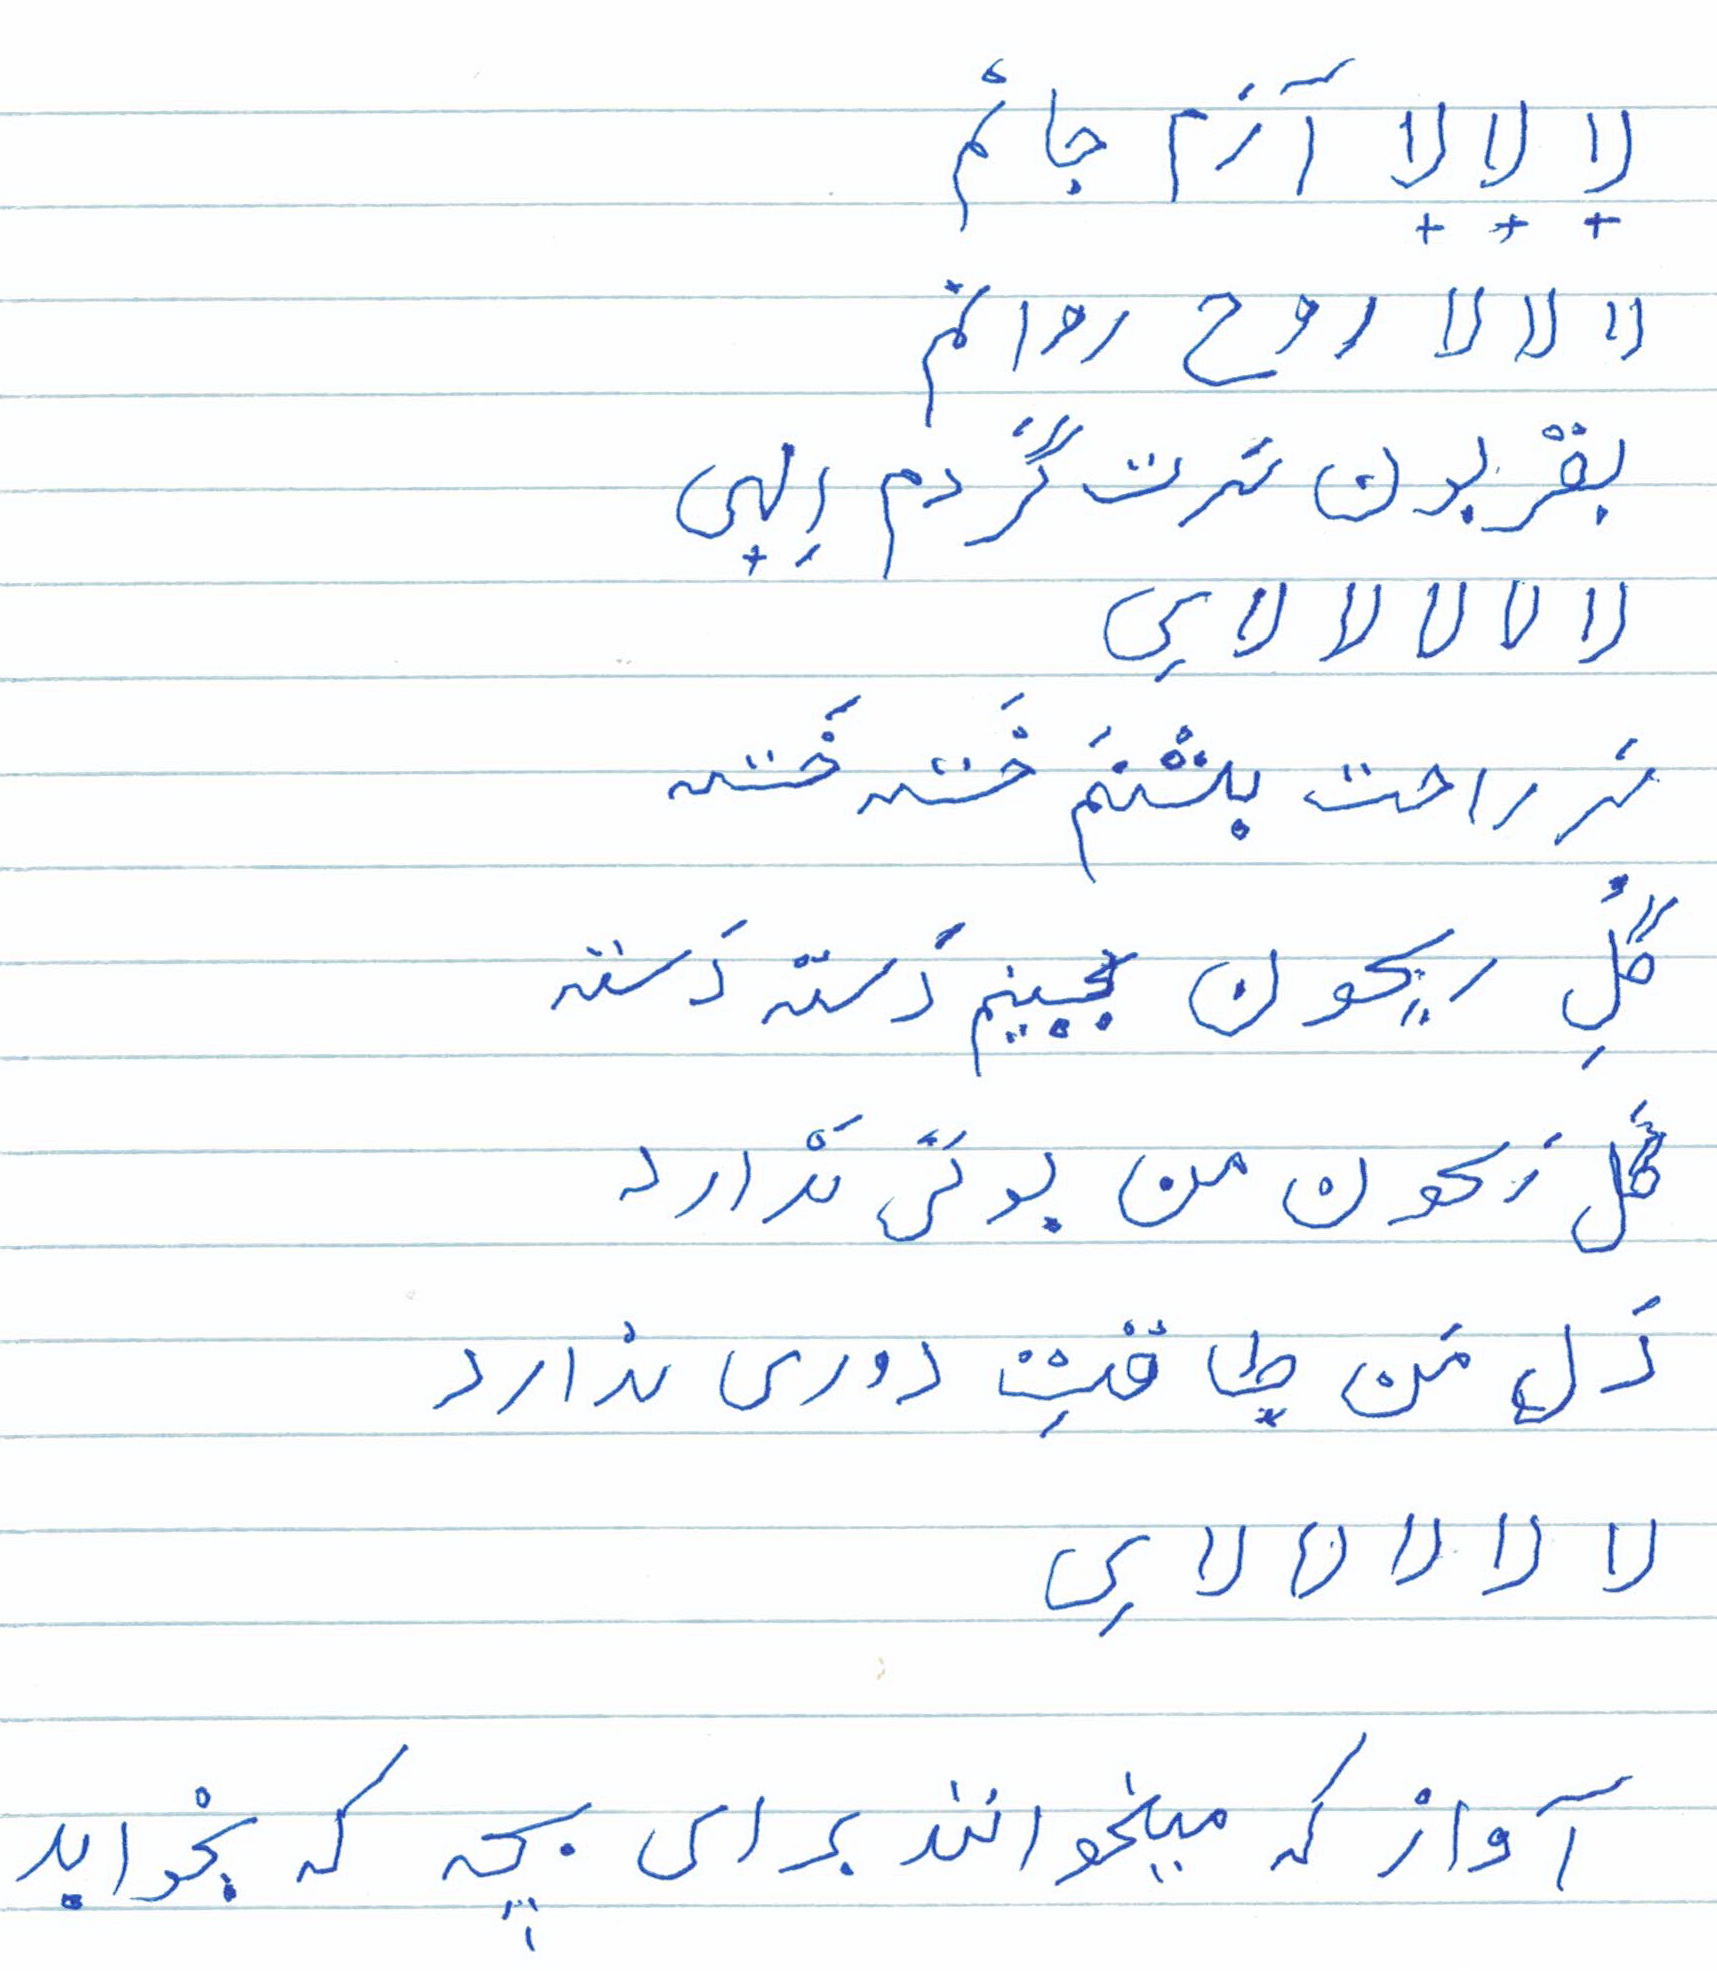 لا لا لا آرَم جانَم
لا لا لا روح روانم
بقربون سَرت گَردم اِلهی
لا لا لا لا لایِ
سَر راحت بشنَم خَسته خَسته
گُلِ ریحون بچینم دَسته دَسته
گُل رَیحون من بوئی نَدارد
دَل مَن طاقتِ دوری ندارد
لا لا لا لا لایِ
آواز که میخوانند برای بچه که بخوابد